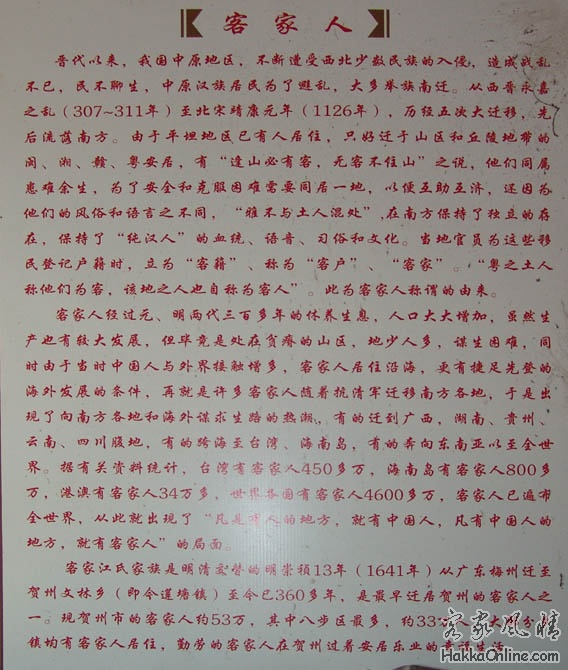 客家人
晋代以来，我国中原地区，不断遭受西北少数民族的入侵，造成战乱
不已，民不聊生，中原汉族居民为了避乱，大多举族南迁。从西晋永嘉
之乱(307~311年)至北宋靖康元年(1126年)，历经五次大迁移，先
后流落南方。由于平坦地区已有人居住，只好迁于山区和丘陵地带的
闽、湘、赣、粤安居，有“逢山必有客，无客不住山”之说，他们同属
患难余生，为了安全和克服困难需要同居一地，以便互助互济，还因为
他们的风俗和语言之不同，“雅不与土人混处”,在南方保持了独立的存
在，保持了“纯汉人”的血统、语音、习俗和文化。当地官员为这些移
民登记户籍时，立为“客籍”、称为“客户”、“客家”。“粤之土人
称他们为客，该地之人也自称为客人”。此为客家人称谓的由来。
客家人经过元、明两代三百多年的休养生息，人口大大增加，虽然生
产也有较大发展，但毕竟是处在贫瘠的山区，地少人多，谋生困难，同
时由于当时中国人与外界接触增多，客家人居住沿海，更有捷足先登的
海外发展的条件，再就是许多客家人随着抗清军迁移南方各地，于是出
现了向南方各地和海外谋求生路的热潮。有的迁到广西，湖南、贵州、
云南、四川腹地，有的跨海至台湾、海南岛，有的奔向东南亚以至全世
界。据有关资料统计，台湾有客家人450多万，海南岛有客家人800多
万，港澳有客家人34万多，世界各国有客家人4600多万，客家人已遍布
全世界，从此就出现了“凡是有人的地方，就有中国人，凡有中国人的
地方，就有客家人”的局面。
客家江氏家族是明清交替的明崇祯13年(1641年)从广东梅州迁至
贺州文林乡(即今莲塘镇)至今已360多年，是最早迁居贺州的客家人之
一。现贺州市的客家人约53万，其中八步区最多，约33万人，大部分乡
镇均有客家人居住，勤劳的客家人在贺州过着安居乐业的幸福生活。
客家风情
HakkaOnline.com